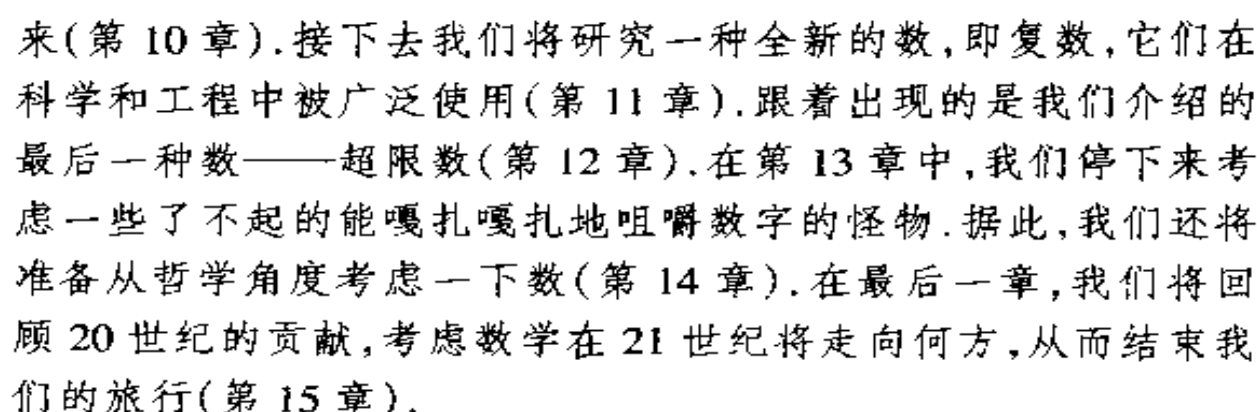 来(第 10 章).接下去我们将研究一种全新的数,即复数,它们在
科学和工程中被广泛使用(第 11 章).跟着出现的是我们介绍的
最后一种数——超限数(第 12 章).在第 13 章中,我们停下来考
虑一些了不起的能嘎扎嘎扎地咀嚼数字的怪物.据此,我们还将
准备从哲学角度考虑一下数(第 14 章).在最后一章,我们将回
顾 20 世纪的贡献,考虑数学在 21 世纪将走向何方,从而结束我
们的旅行(第 15 章).